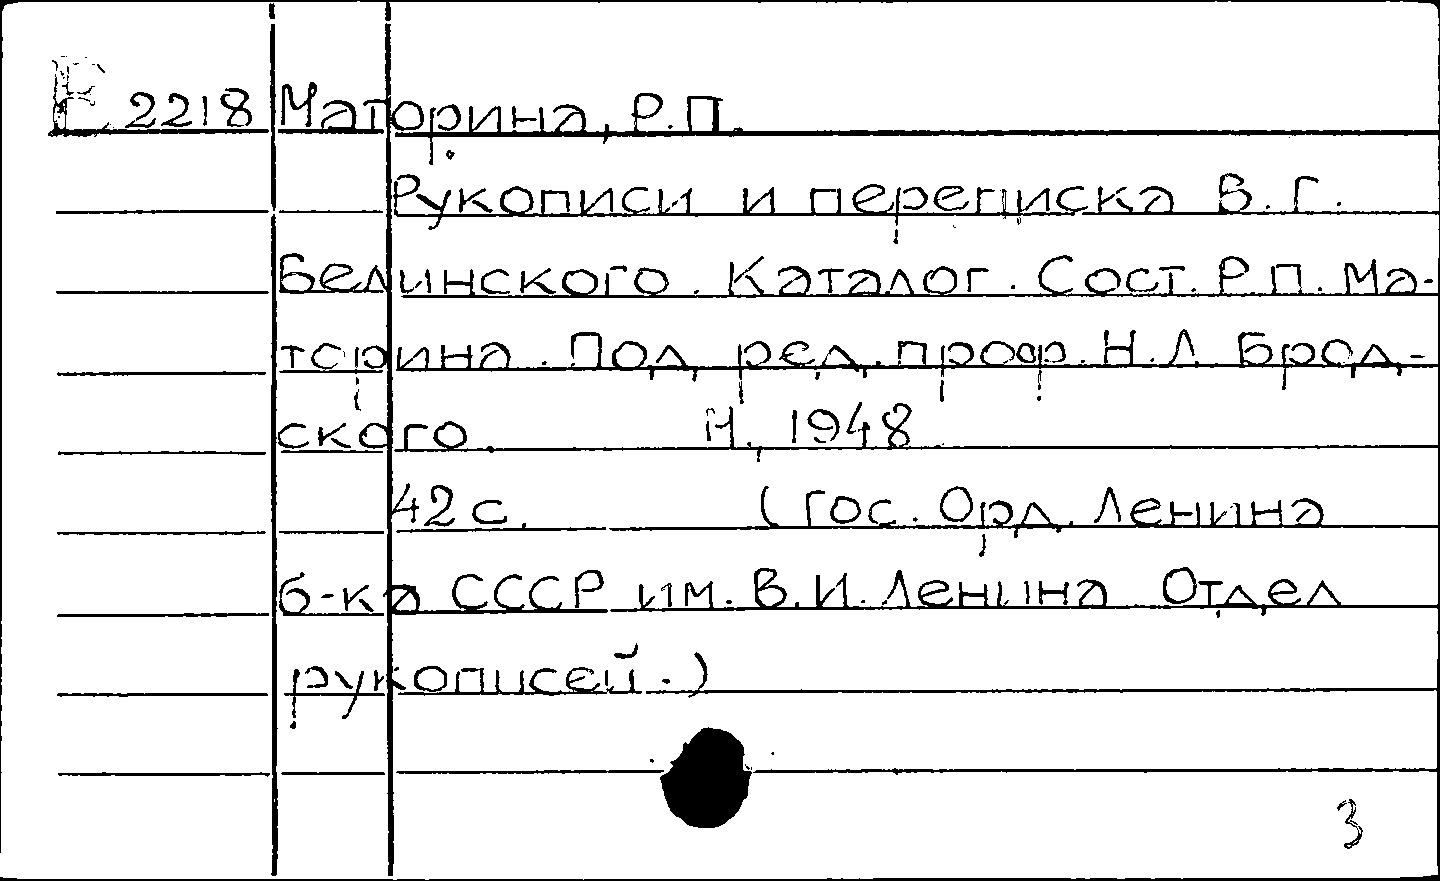 E 2218 Маторина, Р.П.
Рукописи и переписка В.Г.
Белинского. Каталог. Сост. Р.П. Ма-
торина. Под ред. проф. Н.Л. Брод-
ского. М., 1948
42 с. (Гос. Орд. Ленина
б-ка СССР им. В.И. Ленина Отдел
рукописей.)
3